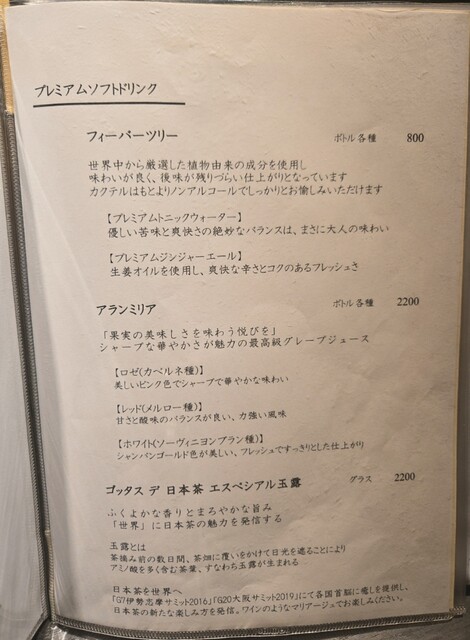 プレミアムソフトドリンク
フィーバーツリー ボトル各種 800
世界中から厳選した植物由来の成分を使用し
味わいが良く、後味が残りづらい仕上がりとなっています
カクテルはもとよりノンアルコールでしっかりとお愉しみいただけます
【プレミアムトニックウォーター】
優しい苦味と爽快さの絶妙なバランスは、まさに大人の味わい
【プレミアムジンジャーエール】
生姜オイルを使用し、爽快な辛さとコクのあるフレッシュさ
アランミリア ボトル各種 2200
「果実の美味しさを味わう悦びを」
シャープな華やかさが魅力の最高級グレープジュース
【ロゼ(カベルネ種)】
美しいピンク色でシャープで華やかな味わい
【レッド(メルロー種)】
甘さと酸味のバランスが良い、力強い風味
【ホワイト(ソーヴィニヨンブラン種)】
シャンパンゴールド色が美しい、フレッシュですっきりとした仕上がり
ゴッタス デ 日本茶 エスペシアル玉露 グラス 2200
ふくよかな香りとまろやかな旨み
「世界」に日本茶の魅力を発信する
玉露とは
茶摘み前の数日間、茶畑に覆いをかけて日光を遮ることにより
アミノ酸を多く含む茶葉、すなわち玉露が生まれる
日本茶を世界へ
「G7伊勢志摩サミット2016」「G20大阪サミット2019」にて各国首脳に癒しを提供し、
日本茶の新たな楽しみ方を発信。ワインのようなマリアージュでお楽しみください。